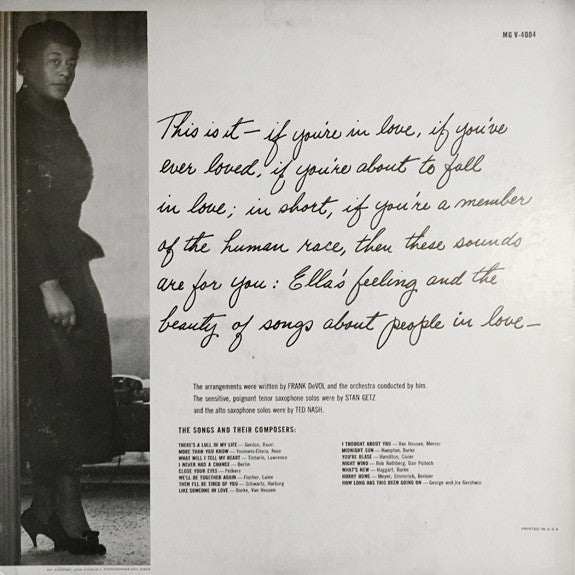 MG V-4004
This is it — if you're in love, if you've
ever loved, if you're about to fall
in love; in short, if you're a member
of the human race, then these sounds
are for you: Ella's feeling and the
beauty of songs about people in love —
The arrangements were written by FRANK DeVOL and the orchestra conducted by him.
The sensitive, poignant tenor saxophone solos were by STAN GETZ
and the alto saxophone solos were by TED NASH.
THE SONGS AND THEIR COMPOSERS:
THERE'S A LULL IN MY LIFE — Gordon, Revel
MORE THAN YOU KNOW — Youmans-Eliscu, Rose
WHAT WILL I TELL MY HEART — Tinturin, Lawrence
I NEVER HAD A CHANCE — Berlin
CLOSE YOUR EYES — Petkere
WE'LL BE TOGETHER AGAIN — Fischer, Laine
THEN I'LL BE TIRED OF YOU — Schwartz, Harburg
LIKE SOMEONE IN LOVE — Burke, Van Heusen
I THOUGHT ABOUT YOU — Van Heusen, Mercer
MIDNIGHT SUN — Hampton, Burke
YOU'RE BLASE — Hamilton, Sivier
NIGHT WIND — Bob Rothberg, Dan Pollock
WHAT'S NEW — Haggart, Burke
HURRY HOME — Meyer, Emmerich, Bernier
HOW LONG HAS THIS BEEN GOING ON — George and Ira Gershwin
PRINTED IN U.S.A.